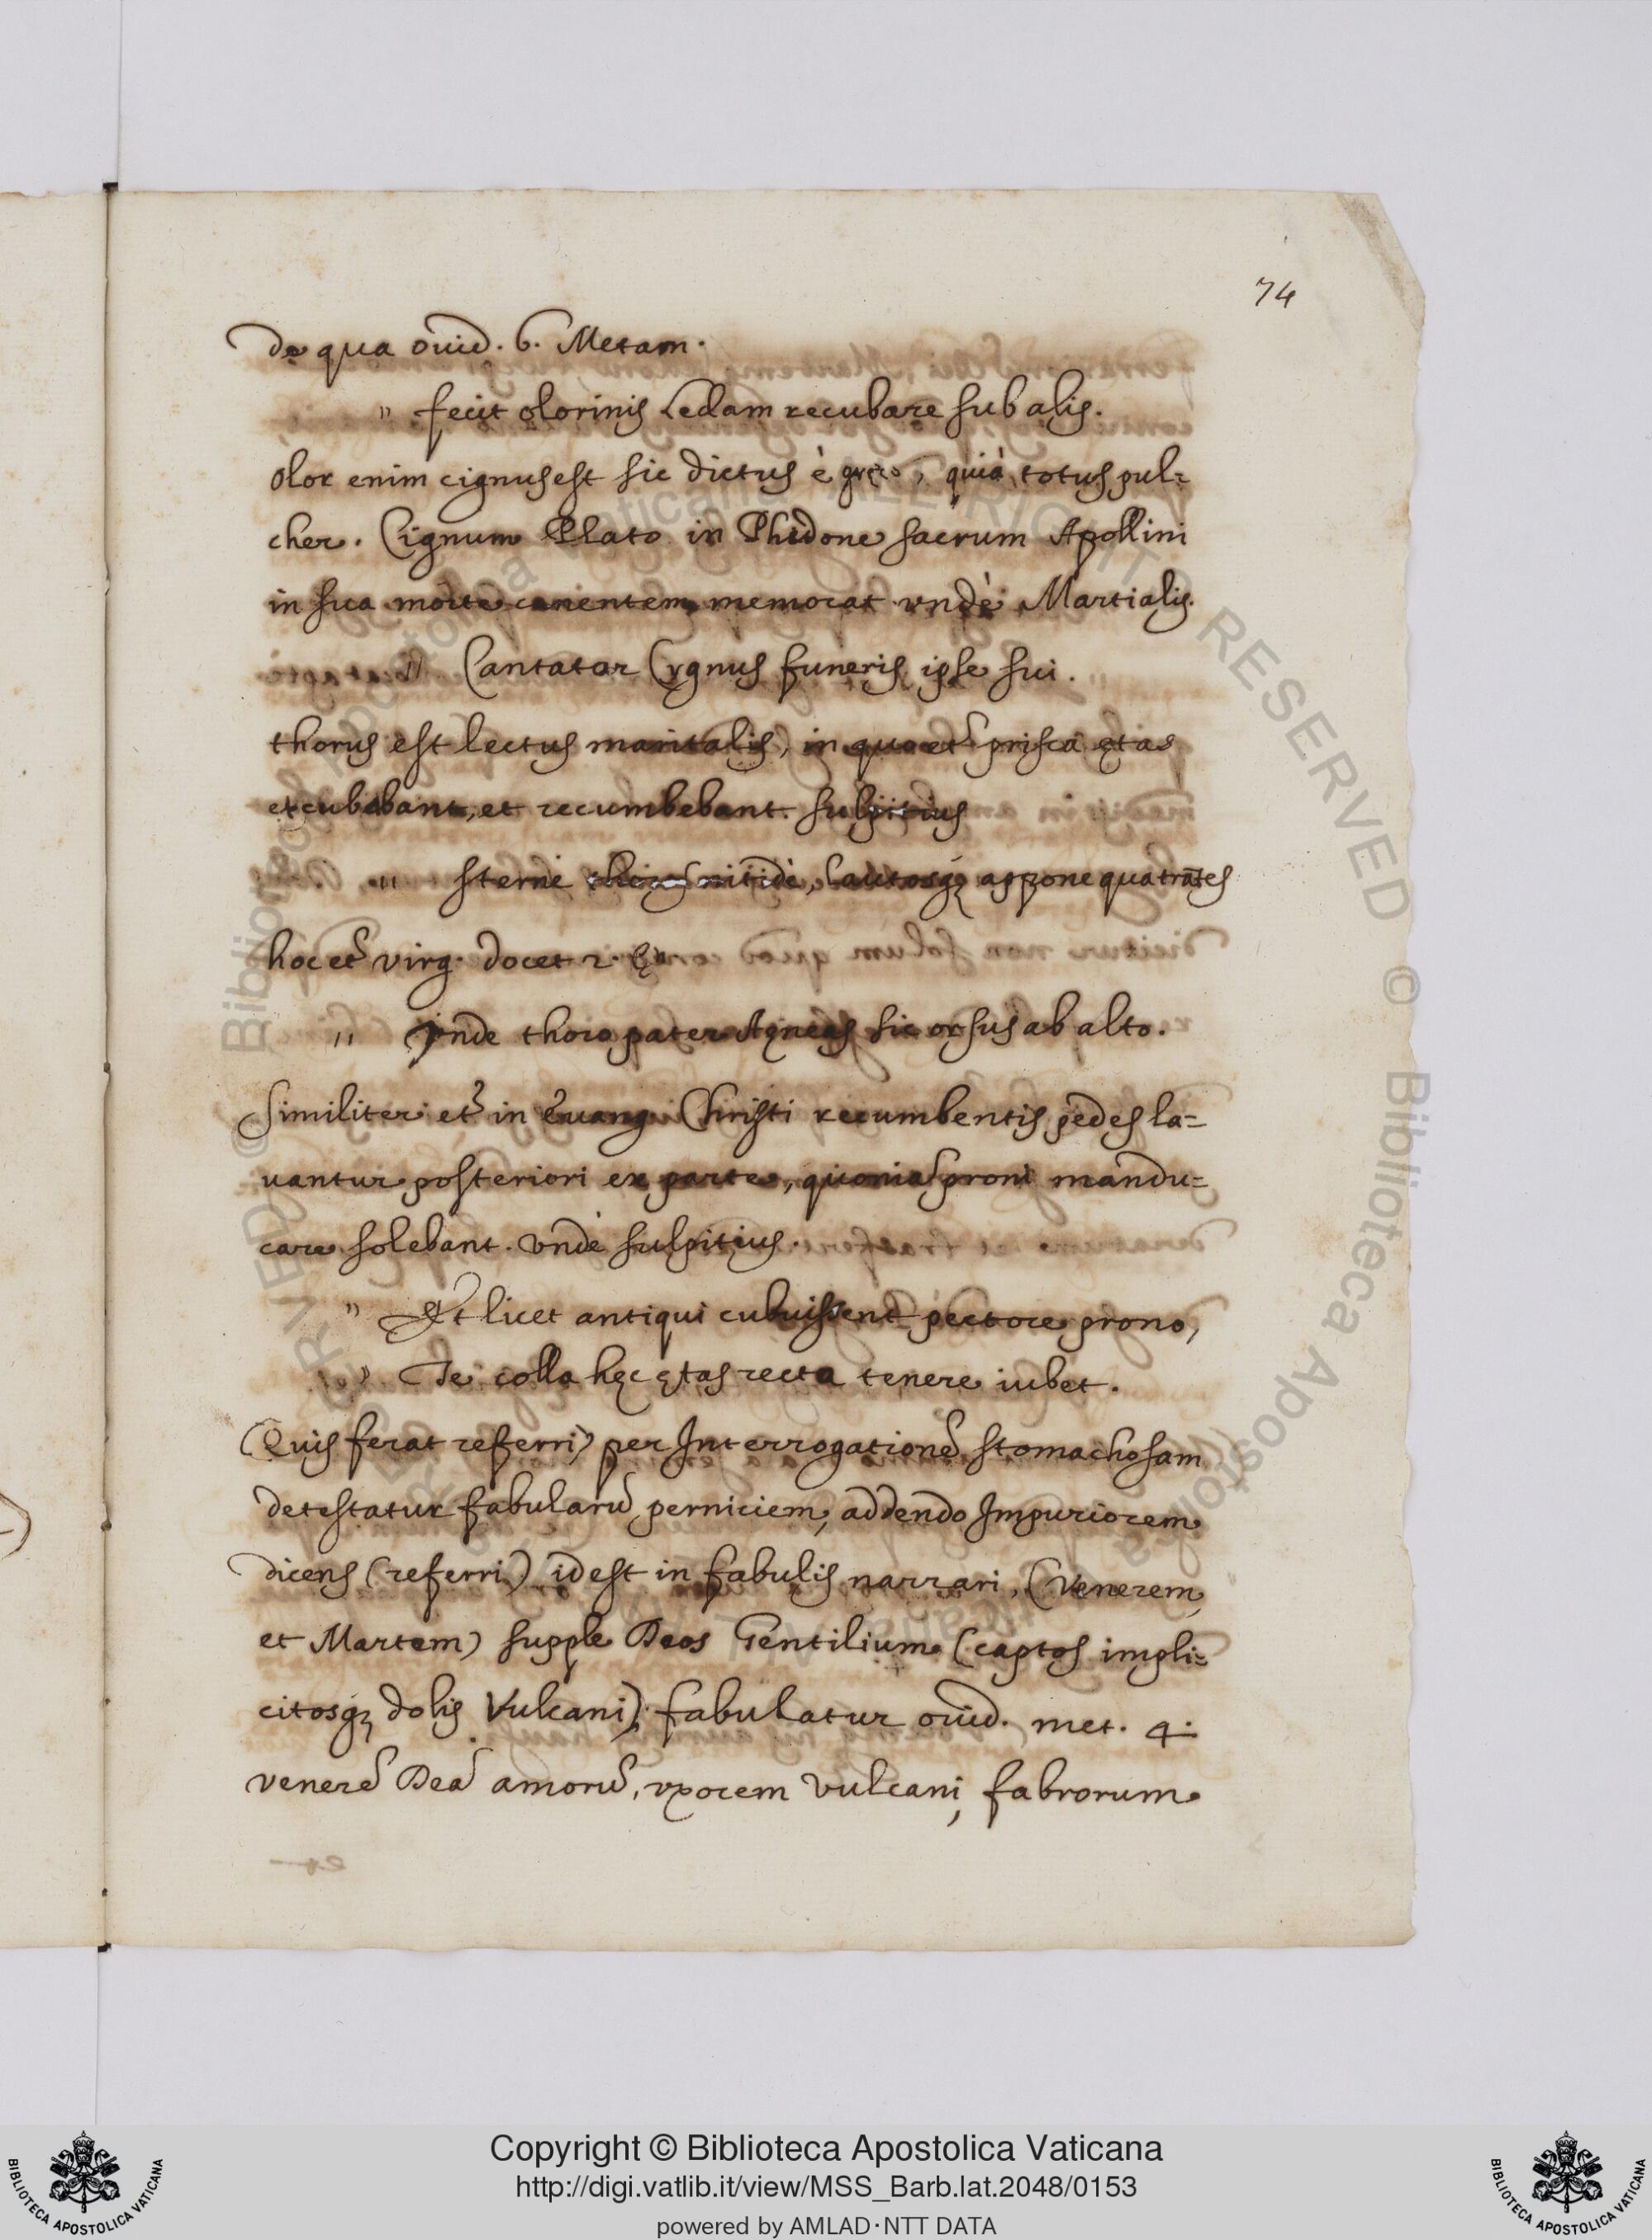 74
de qua ouid. 6. Metam.
" fecit olorinis Ledam recubare sub alis.
olor enim cignus est sic dictus è gręco, quià totus pul=
cher. Cignum Plato in Phedone sacrum Apollini
in sua morte canentem memorat undè Martialis.
" Cantator Cygnus funeris ipse sui.
thorus est lectus maritalis, in quo et prisca ętas
et cubabant, et recumbebant. Sulpitius
" Sterne thoros nitidè, lautosqȝ appone quatrātes
hoc et virg. docet 2. Ęn
" Inde thoro pater Aęneas sic orsus ab alto.
Similiter et in Euang Christi recumbentis pedes la=
uantur posteriori ex parte, quoniā proni mandu=
care solebant. undè sulpitius.
" Et licet antiqui cubuissent pectore prono,
" Te colla hęc ętas recta tenere iubet.
(Quis ferat referri) per Interrogationē stomachosam
detestatur fabularū perniciem, addendo Impuriorem
dicens (referri) idest in fabulis narrari, (Venerem,
et Martem) supple Deos Gentilium (captos impli=
citosqȝ dolis Vulcani) fabulatur ouid. met. 4.
venerē Deā amorū, uxorem Vulcani, fabrorum
Copyright © Biblioteca Apostolica Vaticana
http://digi.vatlib.it/view/MSS_Barb.lat.2048/0153
powered by AMLAD·NTT DATA
BIBLIOTECA APOSTOLICA VATICANA
BIBLIOTECA APOSTOLICA VATICANA